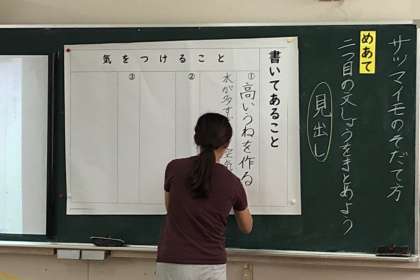 サツマイモのそだて方
めあて
二つ目の文しょうをまとめよう
見出し
書いてあること
① 高いうねを作る
水が多す
空気
気をつけること
②
③